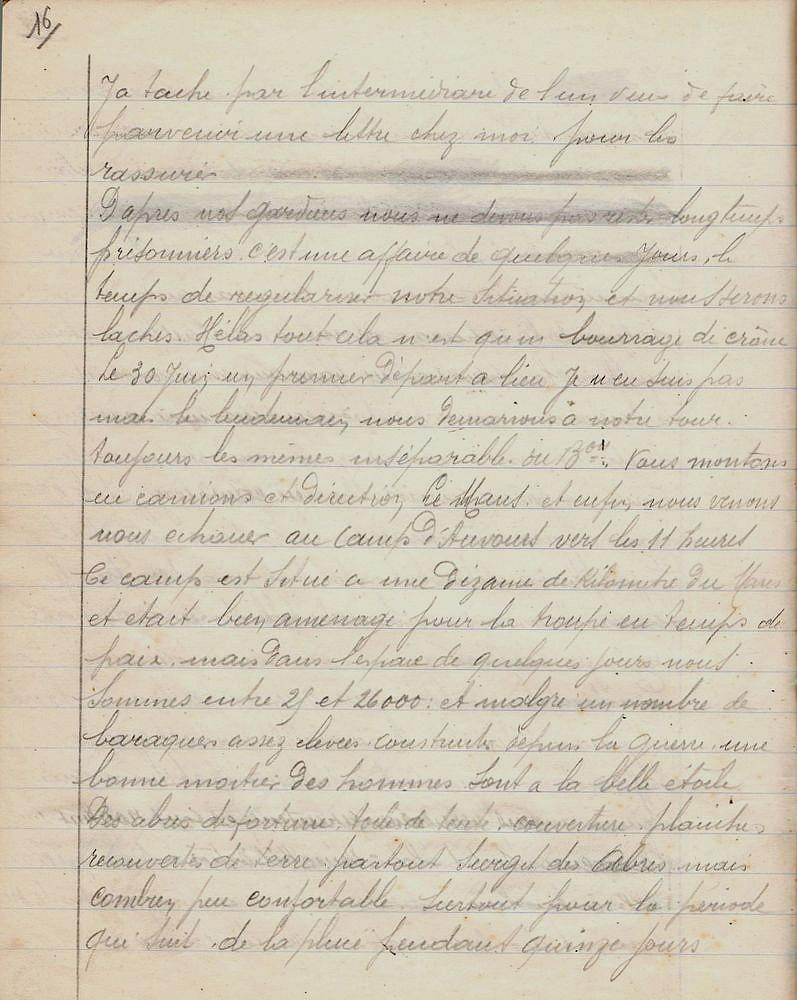 16/
Ja tache par l'intermédiare de l'un deux de faire
parvenir une lettre chez moi pour les
rassurer
Dapres nos gardiens nous ne devons pas rester longtemps
prisonniers. c'est une affaire de quelques jours, le
temps de regulariser notre situation et nous serons
laches. Hélas tout cela n'est qu'un bourrage de crâne
Le 30 Juin un premier départ a lieu Je n'en suis pas
mais le lendemain, nous demarrons a notre tour.
toujours les mêmes inséparable du Bon. Nous montons
en camions et direction Le Mans. et enfin nous venons
nous echouer au Camp d'Auvours vers les 11 heures
Ce camp est situé a une dizaine de kilometre du Mans
et était bien amenagé pour la troupe en temps de
paix. mais dans l'espace de quelques jours nous
sommes entre 25 et 26000: et malgré un nombre de
baraques assez elevées construites depuis la guerre. une
bonne moitier des hommes sont a la belle étoile
Des abris de fortune. toile de tente. couverture. planches
recouvertes de terre. partout des mais
combien peu confortable. surtout pour la periode
qui suit. de la pluie pendant quinze jours